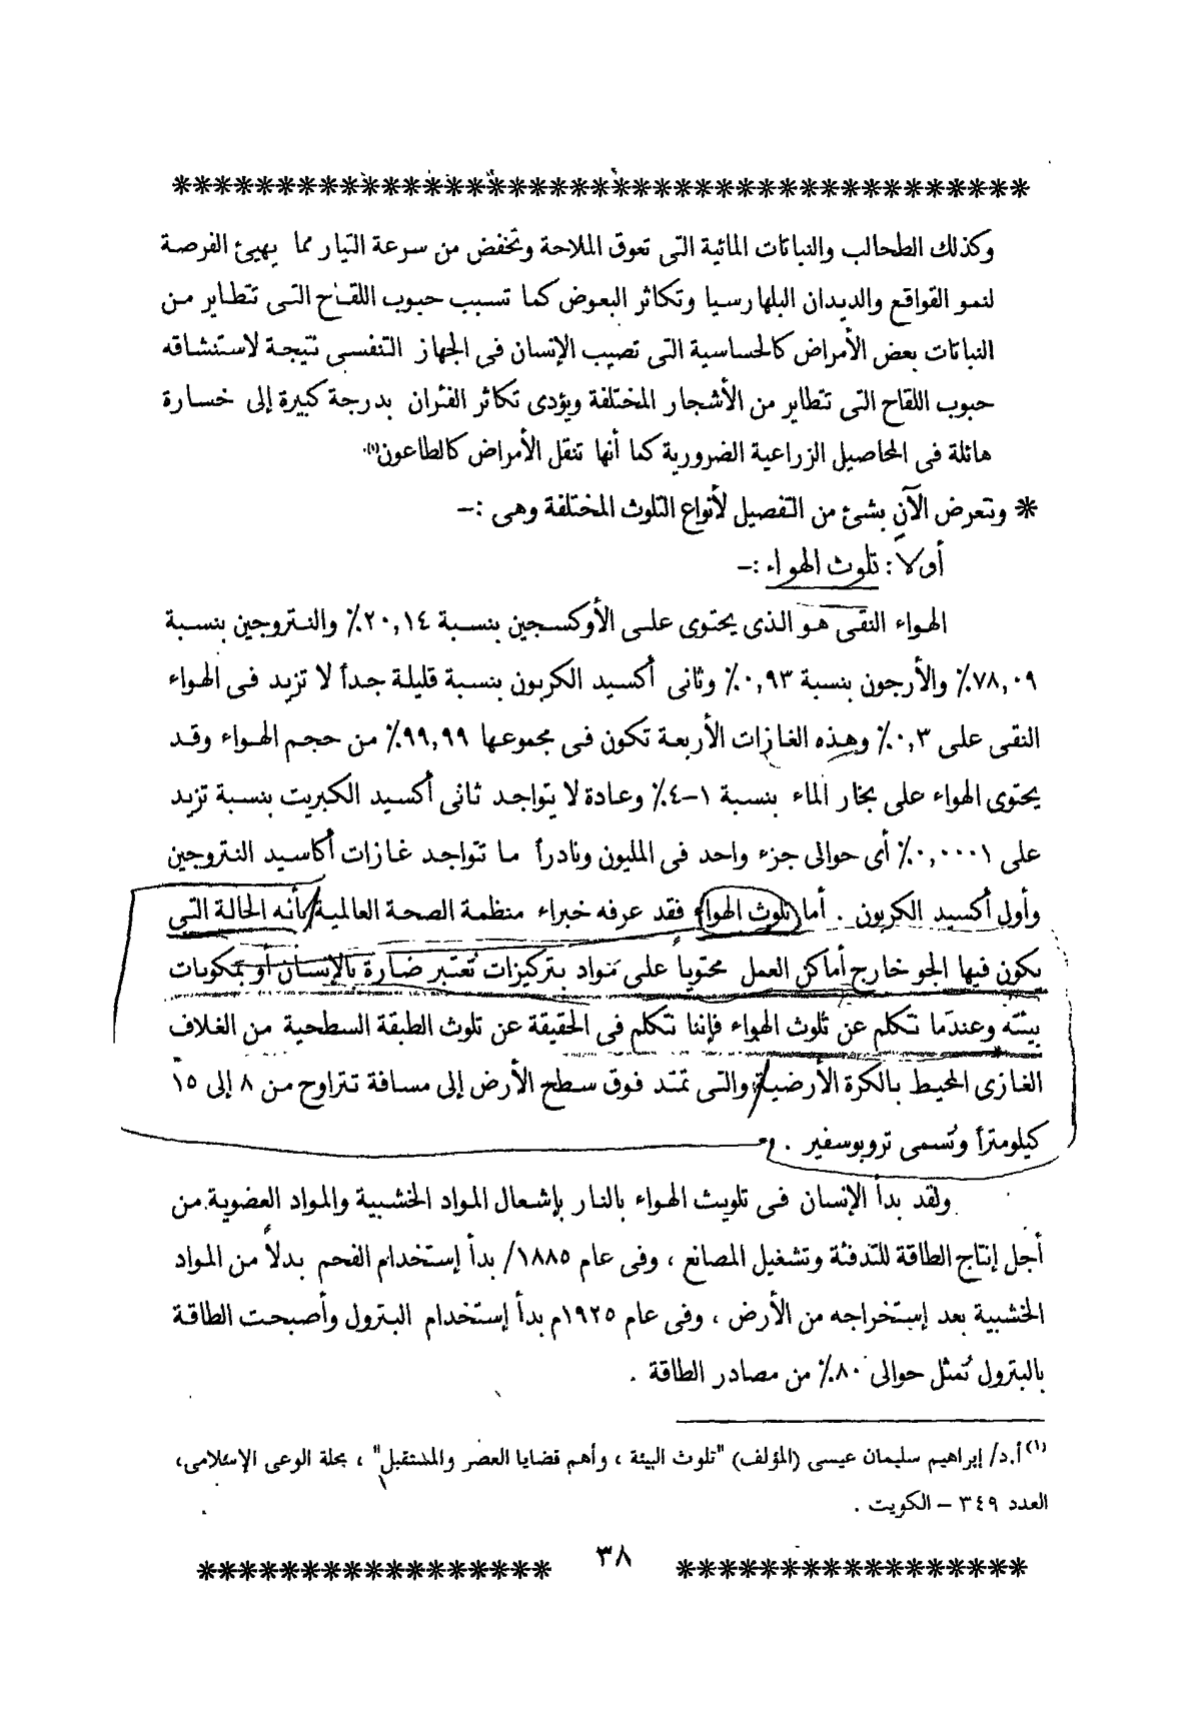 وكذلك الطحالب والنباتات المائية التى تعوق الملاحة وتخفض من سرعة التيار مما يهيئ الفرصة
لنمو القواقع والديدان البلهارسيا وتكاثر البعوض كما تسبب حبوب اللقاح التى تتطاير من
النباتات بعض الأمراض كالحساسية التى تصيب الإنسان فى الجهاز التنفسى نتيجة لاستنشاقه
حبوب اللقاح التى تتطاير من الأشجار المختلفة ويؤدى تكاثر الفئران بدرجة كبيرة إلى خسارة
هائلة فى المحاصيل الزراعية الضرورية كما أنها تنقل الأمراض كالطاعون(١).
* ونتعرض الآن بشئ من التفصيل لأنواع التلوث المختلفة وهى :-
أولاً : تلوث الهواء :-
الهواء النقى هو الذى يحتوى على الأوكسجين بنسبة ٢٠,١٤٪ والنتروجين بنسبة
٧٨,٠٩٪ والأرجون بنسبة ٠,٩٣٪ وثانى أكسيد الكربون بنسبة قليلة جداً لا تزيد فى الهواء
النقى على ٠,٣٪ وهذه الغازات الأربعة تكون فى مجموعها ٩٩,٩٩٪ من حجم الهواء وقد
يحتوى الهواء على بخار الماء بنسبة ١-٤٪ وعادة لا يتواجد ثانى أكسيد الكبريت بنسبة تزيد
على ٠,٠٠٠١٪ أى حوالى جزء واحد فى المليون ونادراً ما تتواجد غازات أكاسيد النتروجين
وأول أكسيد الكربون . أما تلوث الهواء فقد عرفه خبراء منظمة الصحة العالمية بأنه الحالة التى
يكون فيها الجو خارج أماكن العمل محتوياً على مواد بتركيزات تُعتبر ضارة بالإنسان أو بمكونات
بيئته وعندما نتكلم عن تلوث الهواء فإننا نتكلم فى الحقيقة عن تلوث الطبقة السطحية من الغلاف
الغازى المحيط بالكرة الأرضية والتى تمتد فوق سطح الأرض إلى مسافة تتراوح من ٨ إلى ١٥
كيلومتراً وتُسمى تروبوسفير .
ولقد بدأ الإنسان فى تلويث الهواء بالنار بإشعال المواد الخشبية والمواد العضوية من
أجل إنتاج الطاقة للتدفئة وتشغيل المصانع ، وفى عام ١٨٨٥/ بدأ إستخدام الفحم بدلاً من المواد
الخشبية بعد إستخراجه من الأرض ، وفى عام ١٩٢٥م بدأ إستخدام البترول وأصبحت الطاقة
بالبترول تُمثل حوالى ٨٠٪ من مصادر الطاقة .
(١) أ.د/ إبراهيم سليمان عيسى (المؤلف) "تلوث البيئة ، وأهم قضايا العصر والمستقبل" ، مجلة الوعى الإسلامى،
العدد ٣٤٩ – الكويت .
٣٨